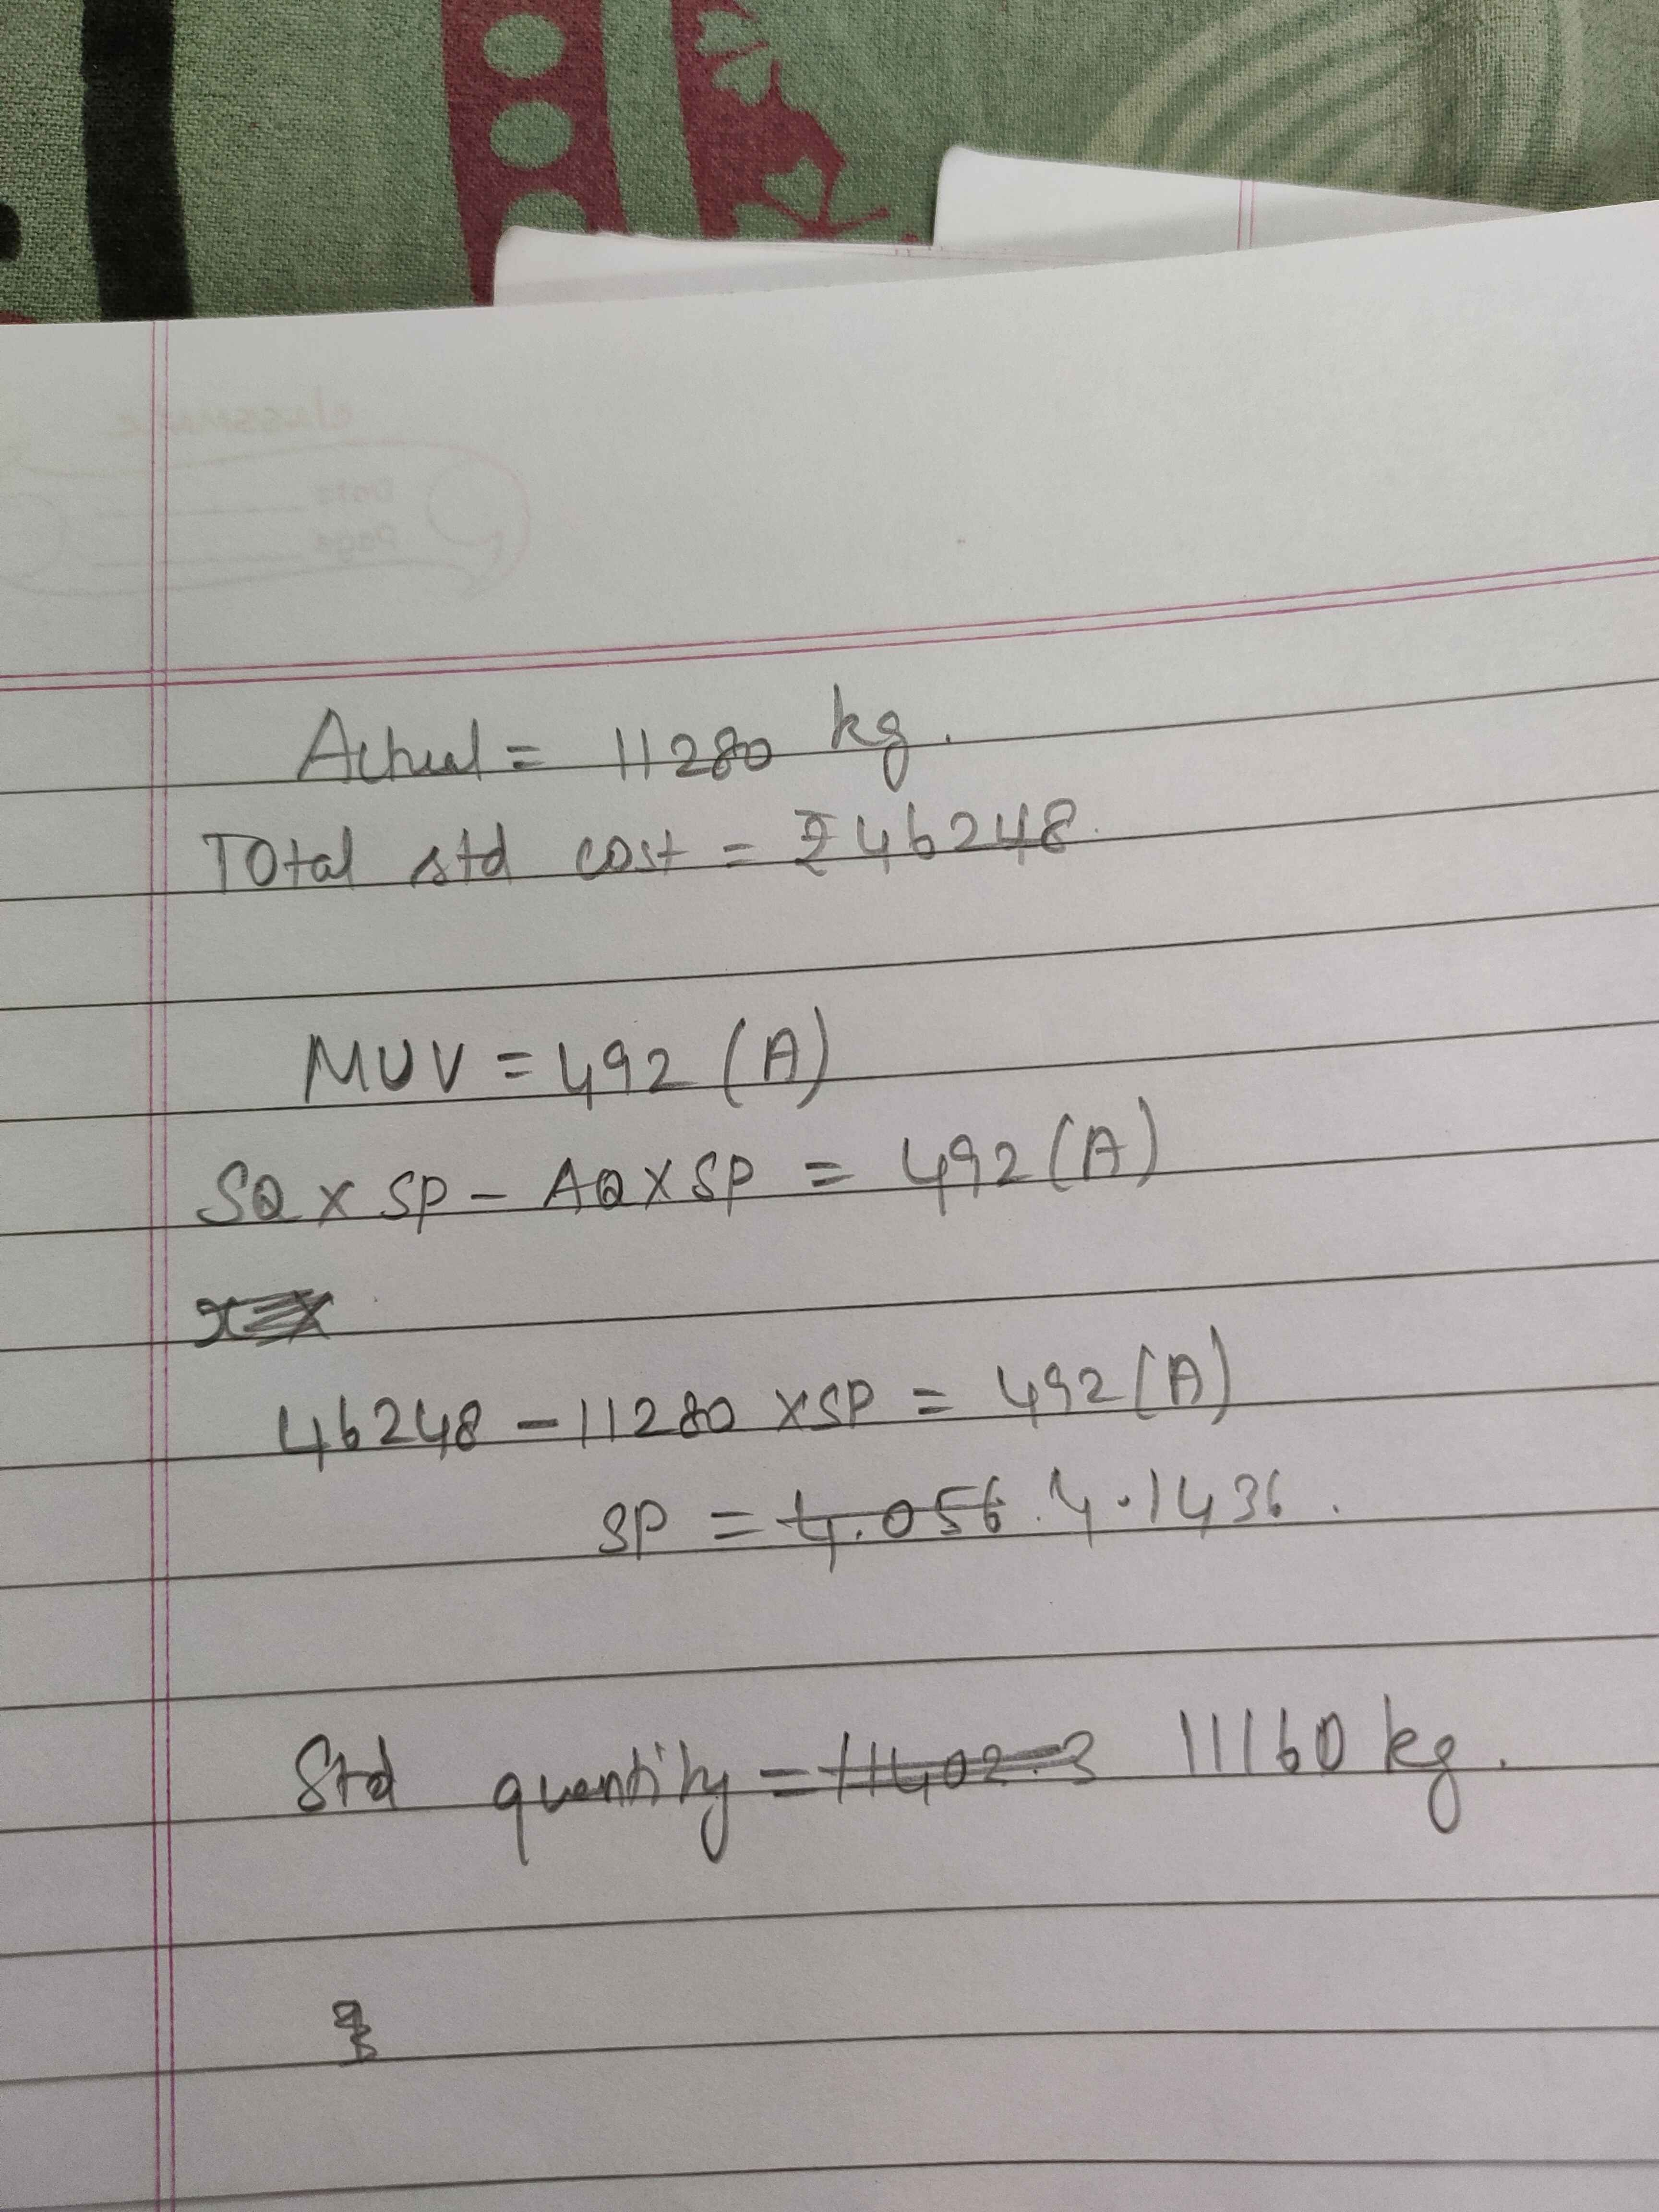 classmate
Date
Page
Actual = 11280 kg.
Total std cost = ₹46248.
MUV = 492 (A)
SQ x SP - AQ x SP = 492 (A)
46248 - 11280 x SP = 492 (A)
SP = 4.056 4.1436.
Std quantity = 11402.3 11160 kg.